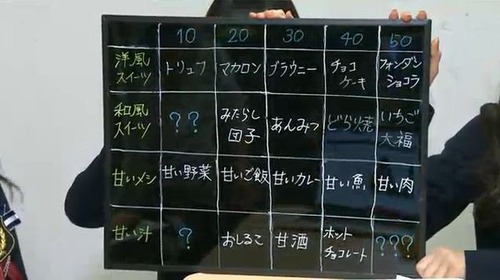 10 20 30 40 50
洋風スイーツ トリュフ マカロン ブラウニー チョコケーキ フォンダンショコラ
和風スイーツ ?? みたらし団子 あんみつ どら焼 いちご大福
甘いメシ 甘い野菜 甘いご飯 甘いカレー 甘い魚 甘い肉
甘い汁 ? おしるこ 甘酒 ホットチョコレート ???